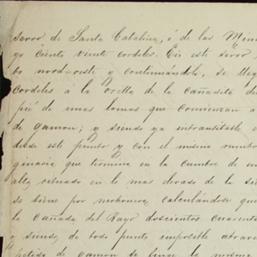 Serro de Santa Catalina, ó de las Min
go ciento veinte cordeles. En este serro
bo nord-oeste y continuándole, se lleg
Cordeles á la orilla de la Cañadita de
pié de unas lomas que comienzan á
de gamon; y siendo ya intransitable e
desde este punto y con el mismo rumbo
ganaria que termina en la cumbre de un
alto, situado en lo mas elevado de la
se tiene por mohonera, calculándose que
la Cañada del Rayo doscientos cuarenta
o siendo, de todo punto imposible
de gamon se tiene la misma